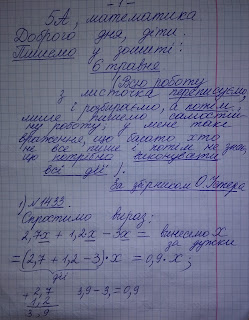 - 1 -
5А, математика
Доброго дня, діти.
Пишемо у зошиті:
6 травня
(Всю роботу
з листочка переписуємо,
і розбираємо, а потім
лише пишемо самостій-
ну роботу; у мене таке
враження, що багато хто
не все пише і потім не знає,
що потрібно виконувати
всі дії).
За збірником О.Істера
1) №1433.
Спростимо вираз:
2,7x + 1,2x - 3x = винесемо x
за дужки
= (2,7 + 1,2 - 3) · x = 0,9x;
дії
+ 2,7
1,2
3,9
3,9 - 3 = 0,9